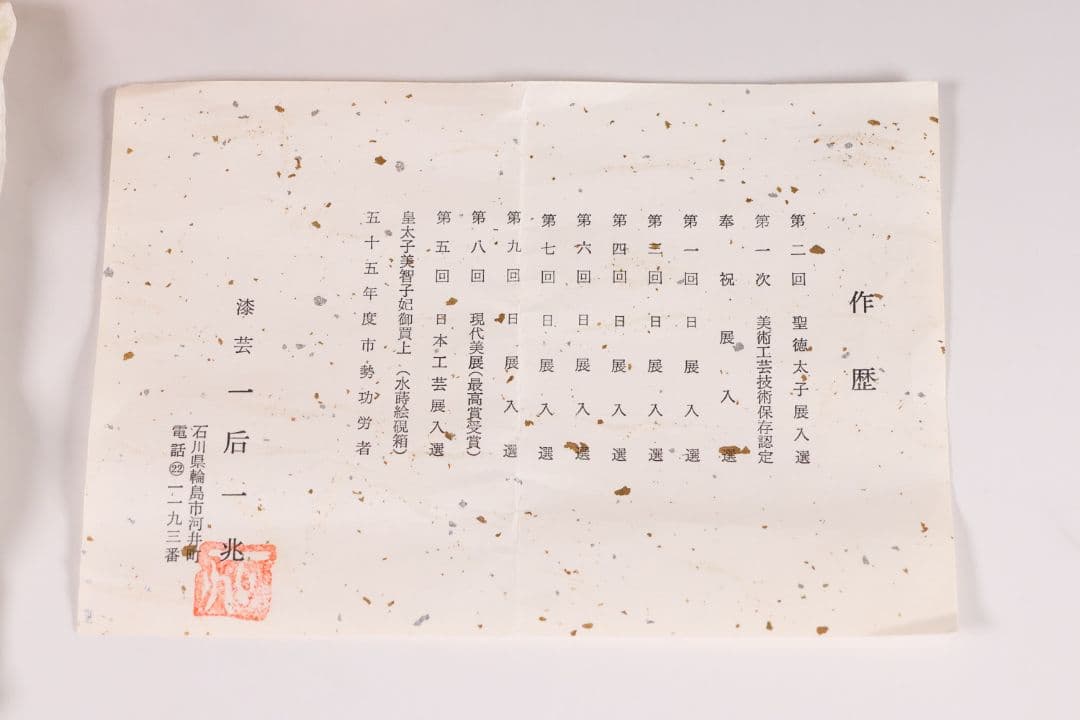 作歴
第二回 聖徳太子展入選
第一次 美術工芸技術保存認定
奉祝展入選
第一回日展入選
第三回日展入選
第四回日展入選
第六回日展入選
第七回日展入選
第九回日展入選
第八回 現代美展(最高賞受賞)
第五回 日本工芸展入選
皇太子美智子妃御買上(水蒔絵硯箱)
五十五年度市勢功労者
漆芸 一后一兆
石川県輪島市河井町
電話㉒一一九三番